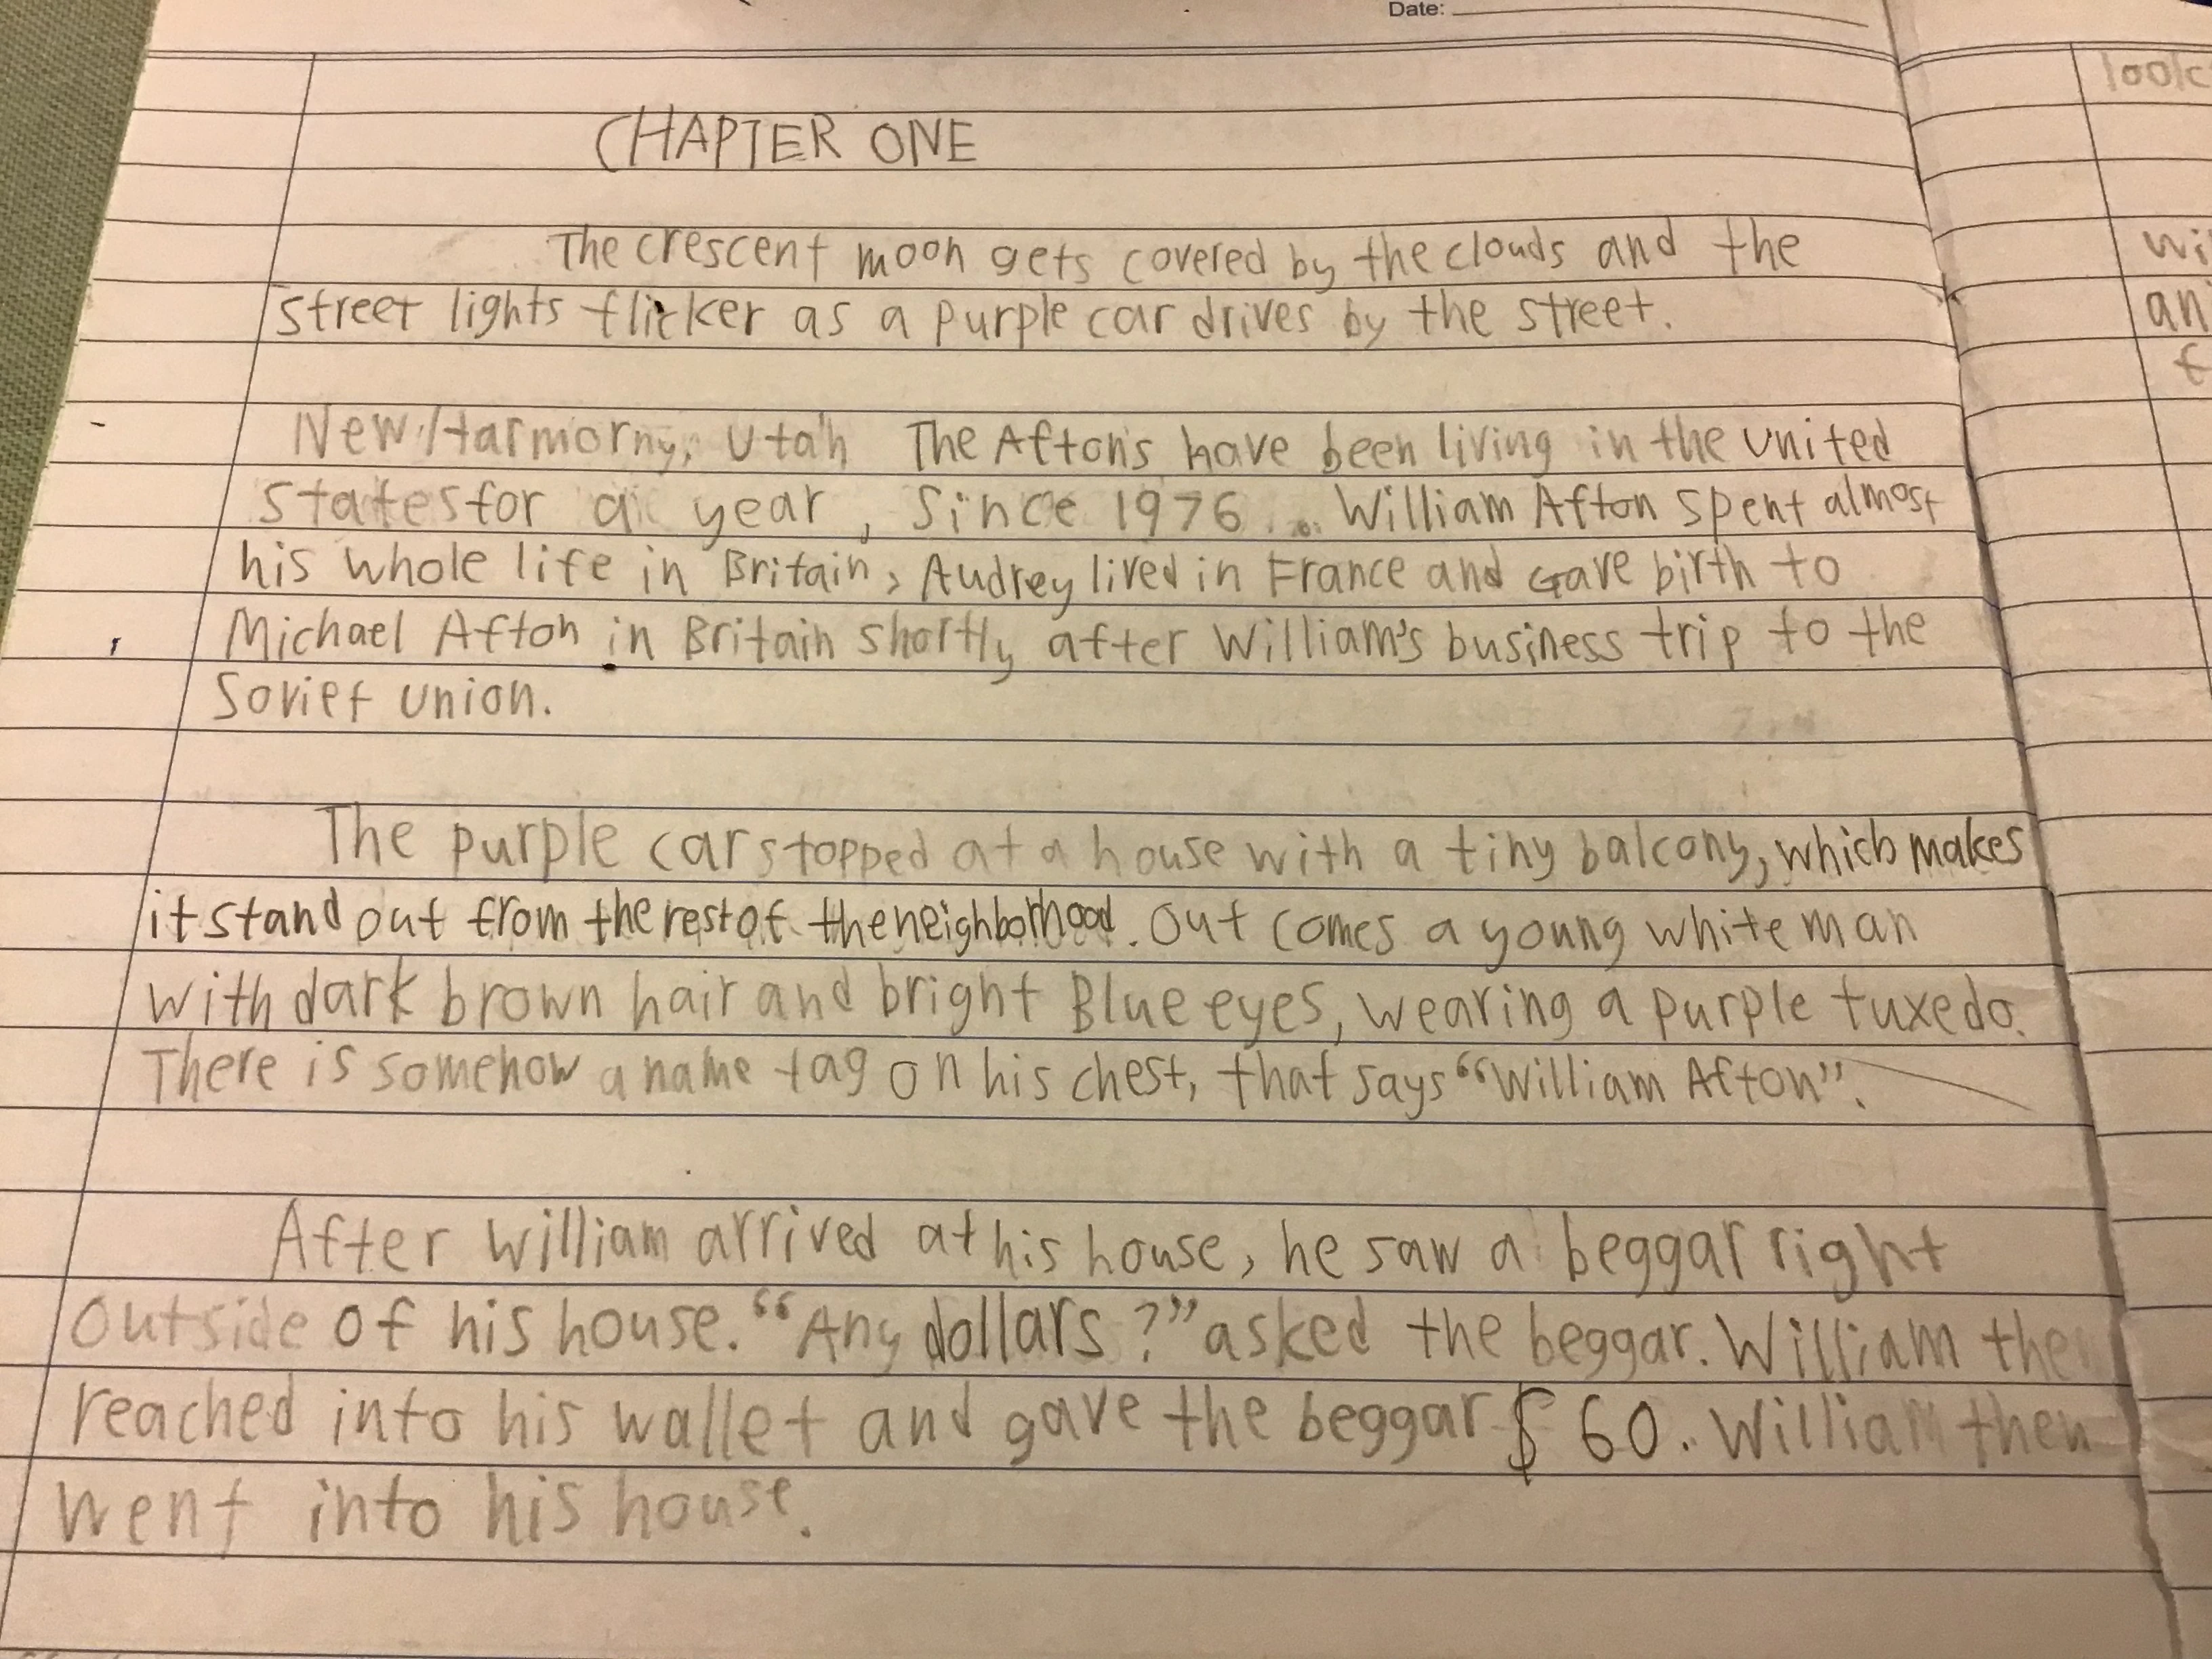 Date:
CHAPTER ONE
The crescent moon gets covered by the clouds and the
street lights flicker as a purple car drives by the street.
New Harmorny, Utah The Afton's have been living in the United
States for a year, Since 1976... William Afton spent almost
his whole life in Britain, Audrey lived in France and Gave birth to
Michael Afton in Britain shortly after William's business trip to the
Soviet union.
The purple car stopped at a house with a tiny balcony, which makes
it stand out from the rest of the neighborhood. Out comes a young white man
with dark brown hair and bright Blue eyes, wearing a purple tuxedo.
There is somehow a name tag on his chest, that says “William Afton”.
After William arrived at his house, he saw a beggar right
outside of his house. “Any dollars?” asked the beggar. William then
reached into his wallet and gave the beggar $60. William then
went into his house.